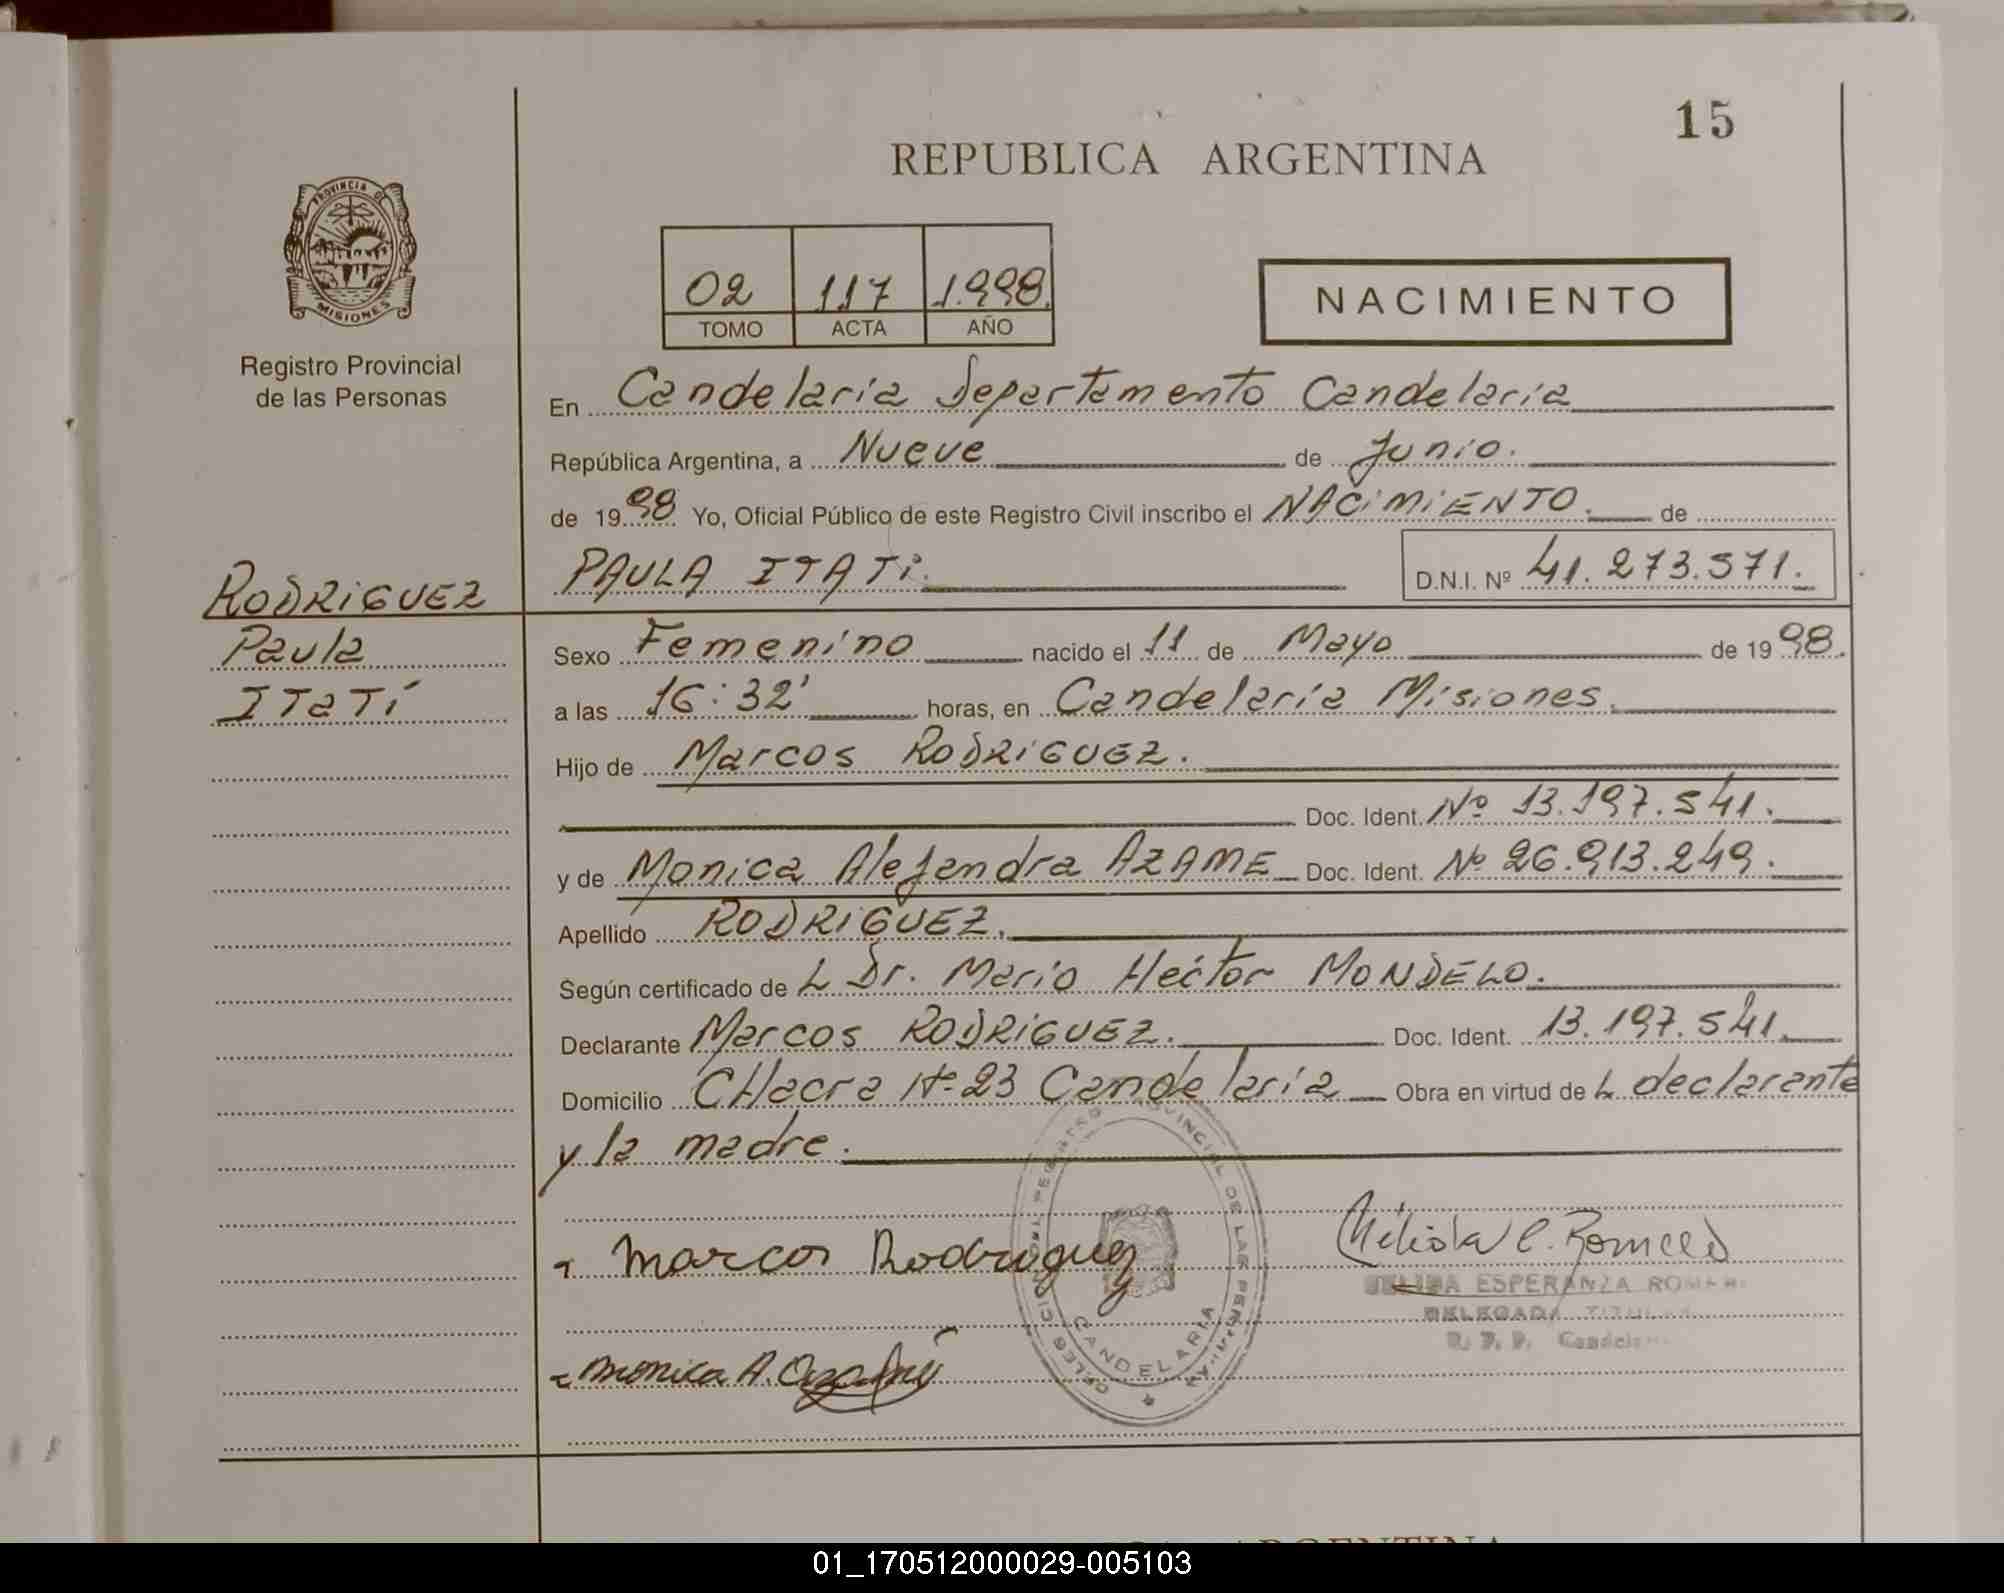 15
REPUBLICA ARGENTINA
PROVINCIA DE
MISIONES
Registro Provincial
de las Personas
02 117 1.998.
TOMO ACTA AÑO
NACIMIENTO
En Candelaria Departamento Candelaria
República Argentina, a Nueve de Junio.
de 1998 Yo, Oficial Público de este Registro Civil inscribo el NACIMIENTO. de
PAULA ITATI. D.N.I. Nº 41.273.571.
RODRIGUEZ
Paula
ITATÍ
Sexo Femenino nacido el 11 de Mayo de 1998.
a las 16:32' horas, en Candelaria Misiones.
Hijo de Marcos RODRIGUEZ.
Doc. Ident. Nº 13.197.541.
y de Monica Alejandra AZAME Doc. Ident. Nº 26.913.249.
Apellido RODRIGUEZ.
Según certificado de L Dr. Mario Héctor MONDELO.
Declarante Marcos RODRIGUEZ. Doc. Ident. 13.197.541.
Domicilio CHacra Nº 23 Candelaria Obra en virtud de L declarante
y la madre.
Marcos Rodriguez
ESPERANZA ROMERO
DELEGADA TITULAR
R. P. P. Candelaria
PROVINCIAL DE LAS PERSONAS
CANDELARIA
Monica A.
REPUBLICA ARGENTINA
01_170512000029-005103